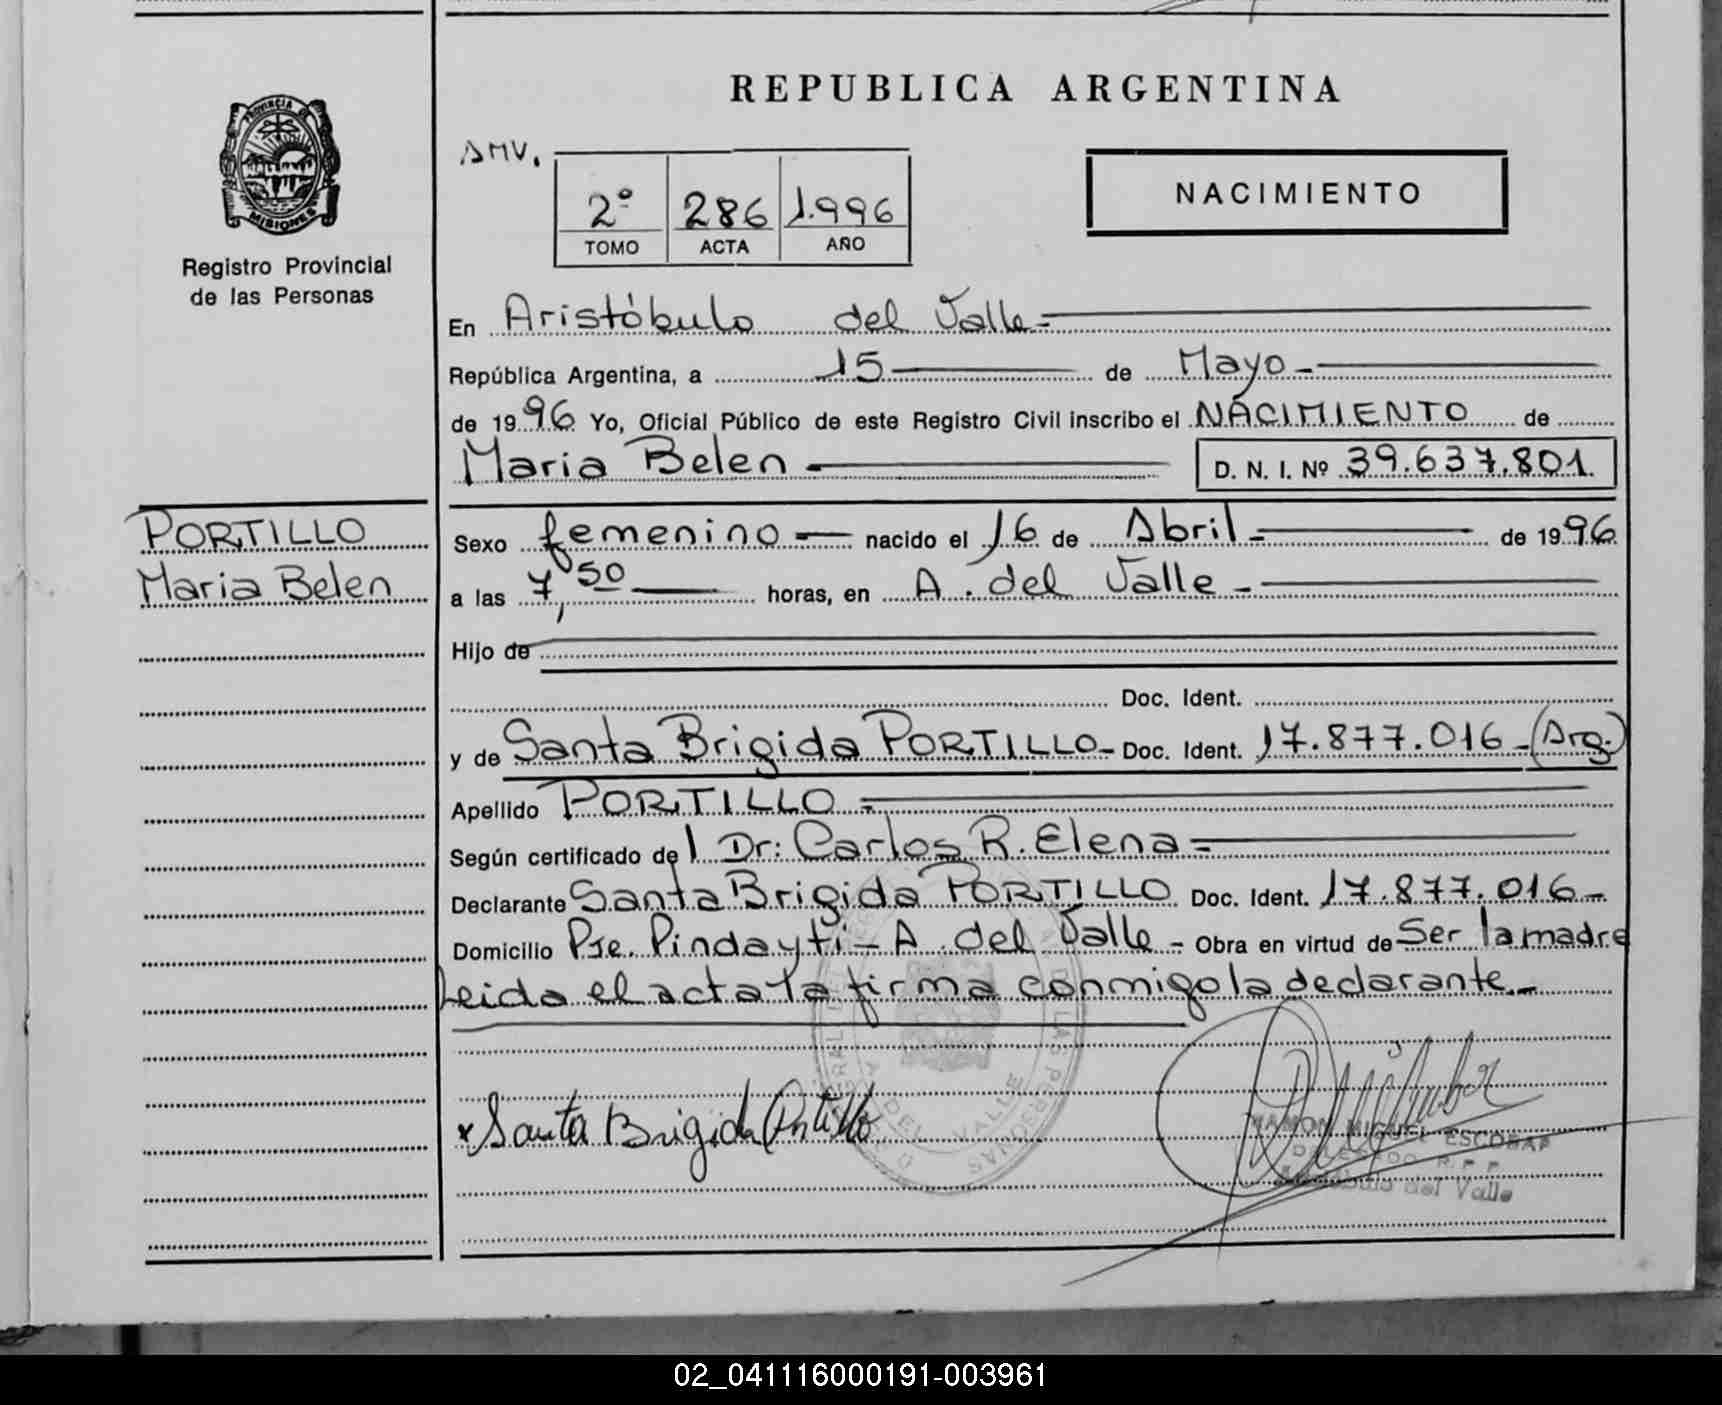 REPUBLICA ARGENTINA
PROVINCIA DE
MISIONES
Registro Provincial
de las Personas
AMV.
2º 286 1.996
TOMO ACTA AÑO
NACIMIENTO
En Aristóbulo del Valle-
República Argentina, a 15 de Mayo-
de 1996 Yo, Oficial Público de este Registro Civil inscribo el NACIMIENTO de
Maria Belen - D. N. I. Nº 39.637.801
PORTILLO
Maria Belen
Sexo femenino - nacido el 16 de Abril- de 1996.
a las 7,50 horas, en A. del Valle-
Hijo de
Doc. Ident.
y de Santa Brigida PORTILLO- Doc. Ident. 17.877.016-(Arg.)
Apellido PORTILLO-
Según certificado del Dr: Carlos R. Elena=
Declarante Santa Brigida PORTILLO Doc. Ident. 17.877.016-
Domicilio Pje. Pindayti-A. del Valle- Obra en virtud de Ser la madre
Leida el acta la firma conmigo la declarante.-
x Santa Brigida Portillo
RAMON MIGUEL ESCOBAR
DELEGADO R. P. P.
Aristóbulo del Valle
02_041116000191-003961